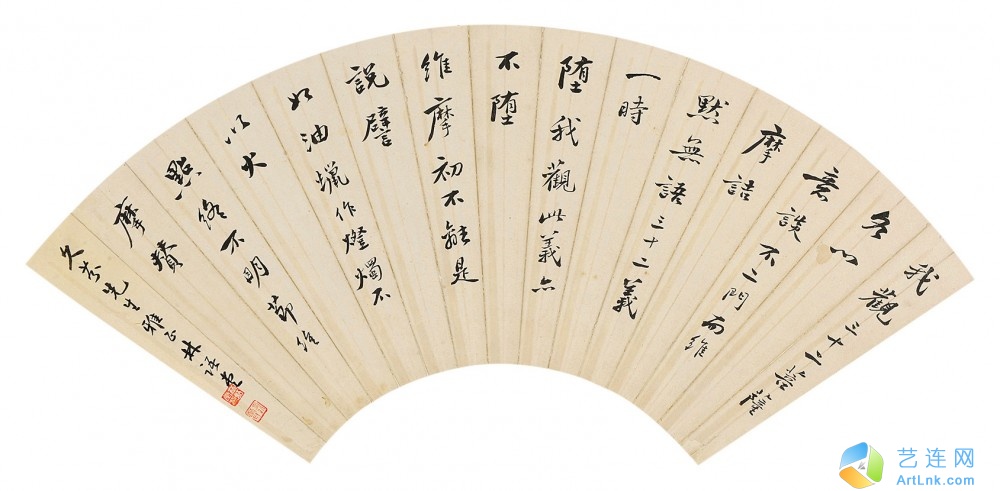 我觀三十二菩薩
各以
意談不二門而維
摩詰
默無語三十二義
一時
墮我觀此義亦
不墮
維摩初不離是
說譬
如油蠟作燈燭不
以火
點終不明節維
摩贊
久芳先生雅正林語堂
艺连网
ArtLnk.com